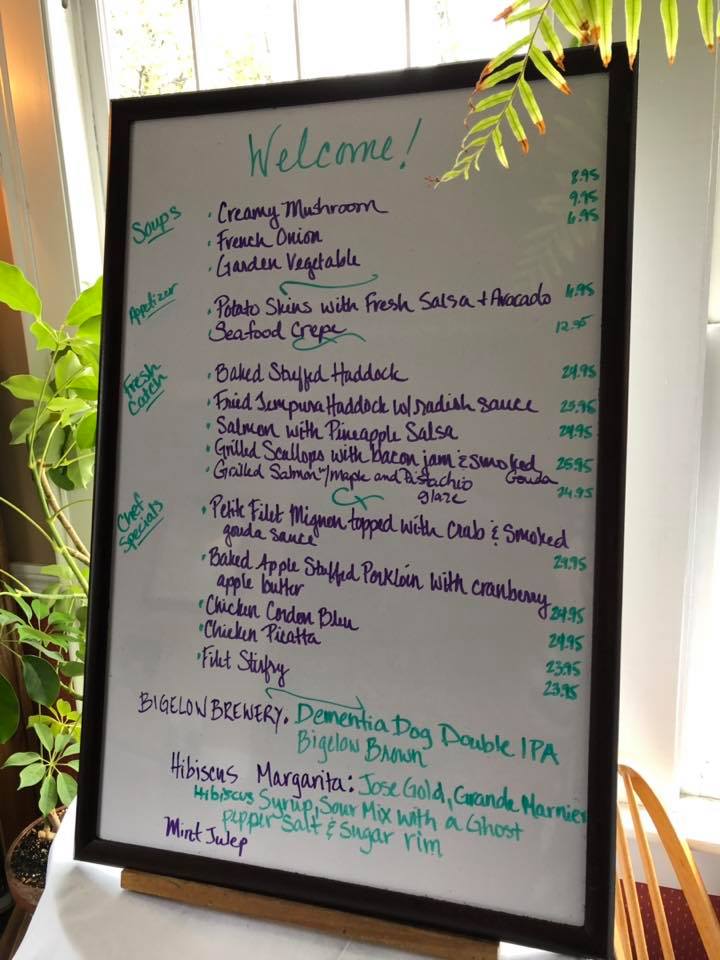 Welcome!
Soups
· Creamy Mushroom 8.95
· French Onion 9.95
· Garden Vegetable 6.95
Appetizer
· Potato Skins with Fresh Salsa + Avocado 6.95
Seafood Crepe 12.95
Fresh Catch
· Baked Stuffed Haddock 24.95
· Fried Tempura Haddock w/radish sauce 25.95
· Salmon with Pineapple Salsa 24.95
· Grilled Scallops with bacon jam & smoked Gouda 25.95
· Grilled Salmon w/Maple and Pistachio glaze 24.95
Chef Specials
· Petite Filet Mignon topped with Crab & Smoked
gouda sauce 29.95
· Baked Apple Stuffed Porkloin with cranberry
apple butter 24.95
· Chicken Cordon Bleu 24.95
· Chicken Picatta 23.95
· Filet Stirfry 23.95
BIGELOW BREWERY. Dementia Dog Double IPA
Bigelow Brown
Hibiscus Margarita: Jose Gold, Grande Marnier
Hibiscus Syrup, Sour Mix with a Ghost
pepper Salt & Sugar rim
Mint Julep